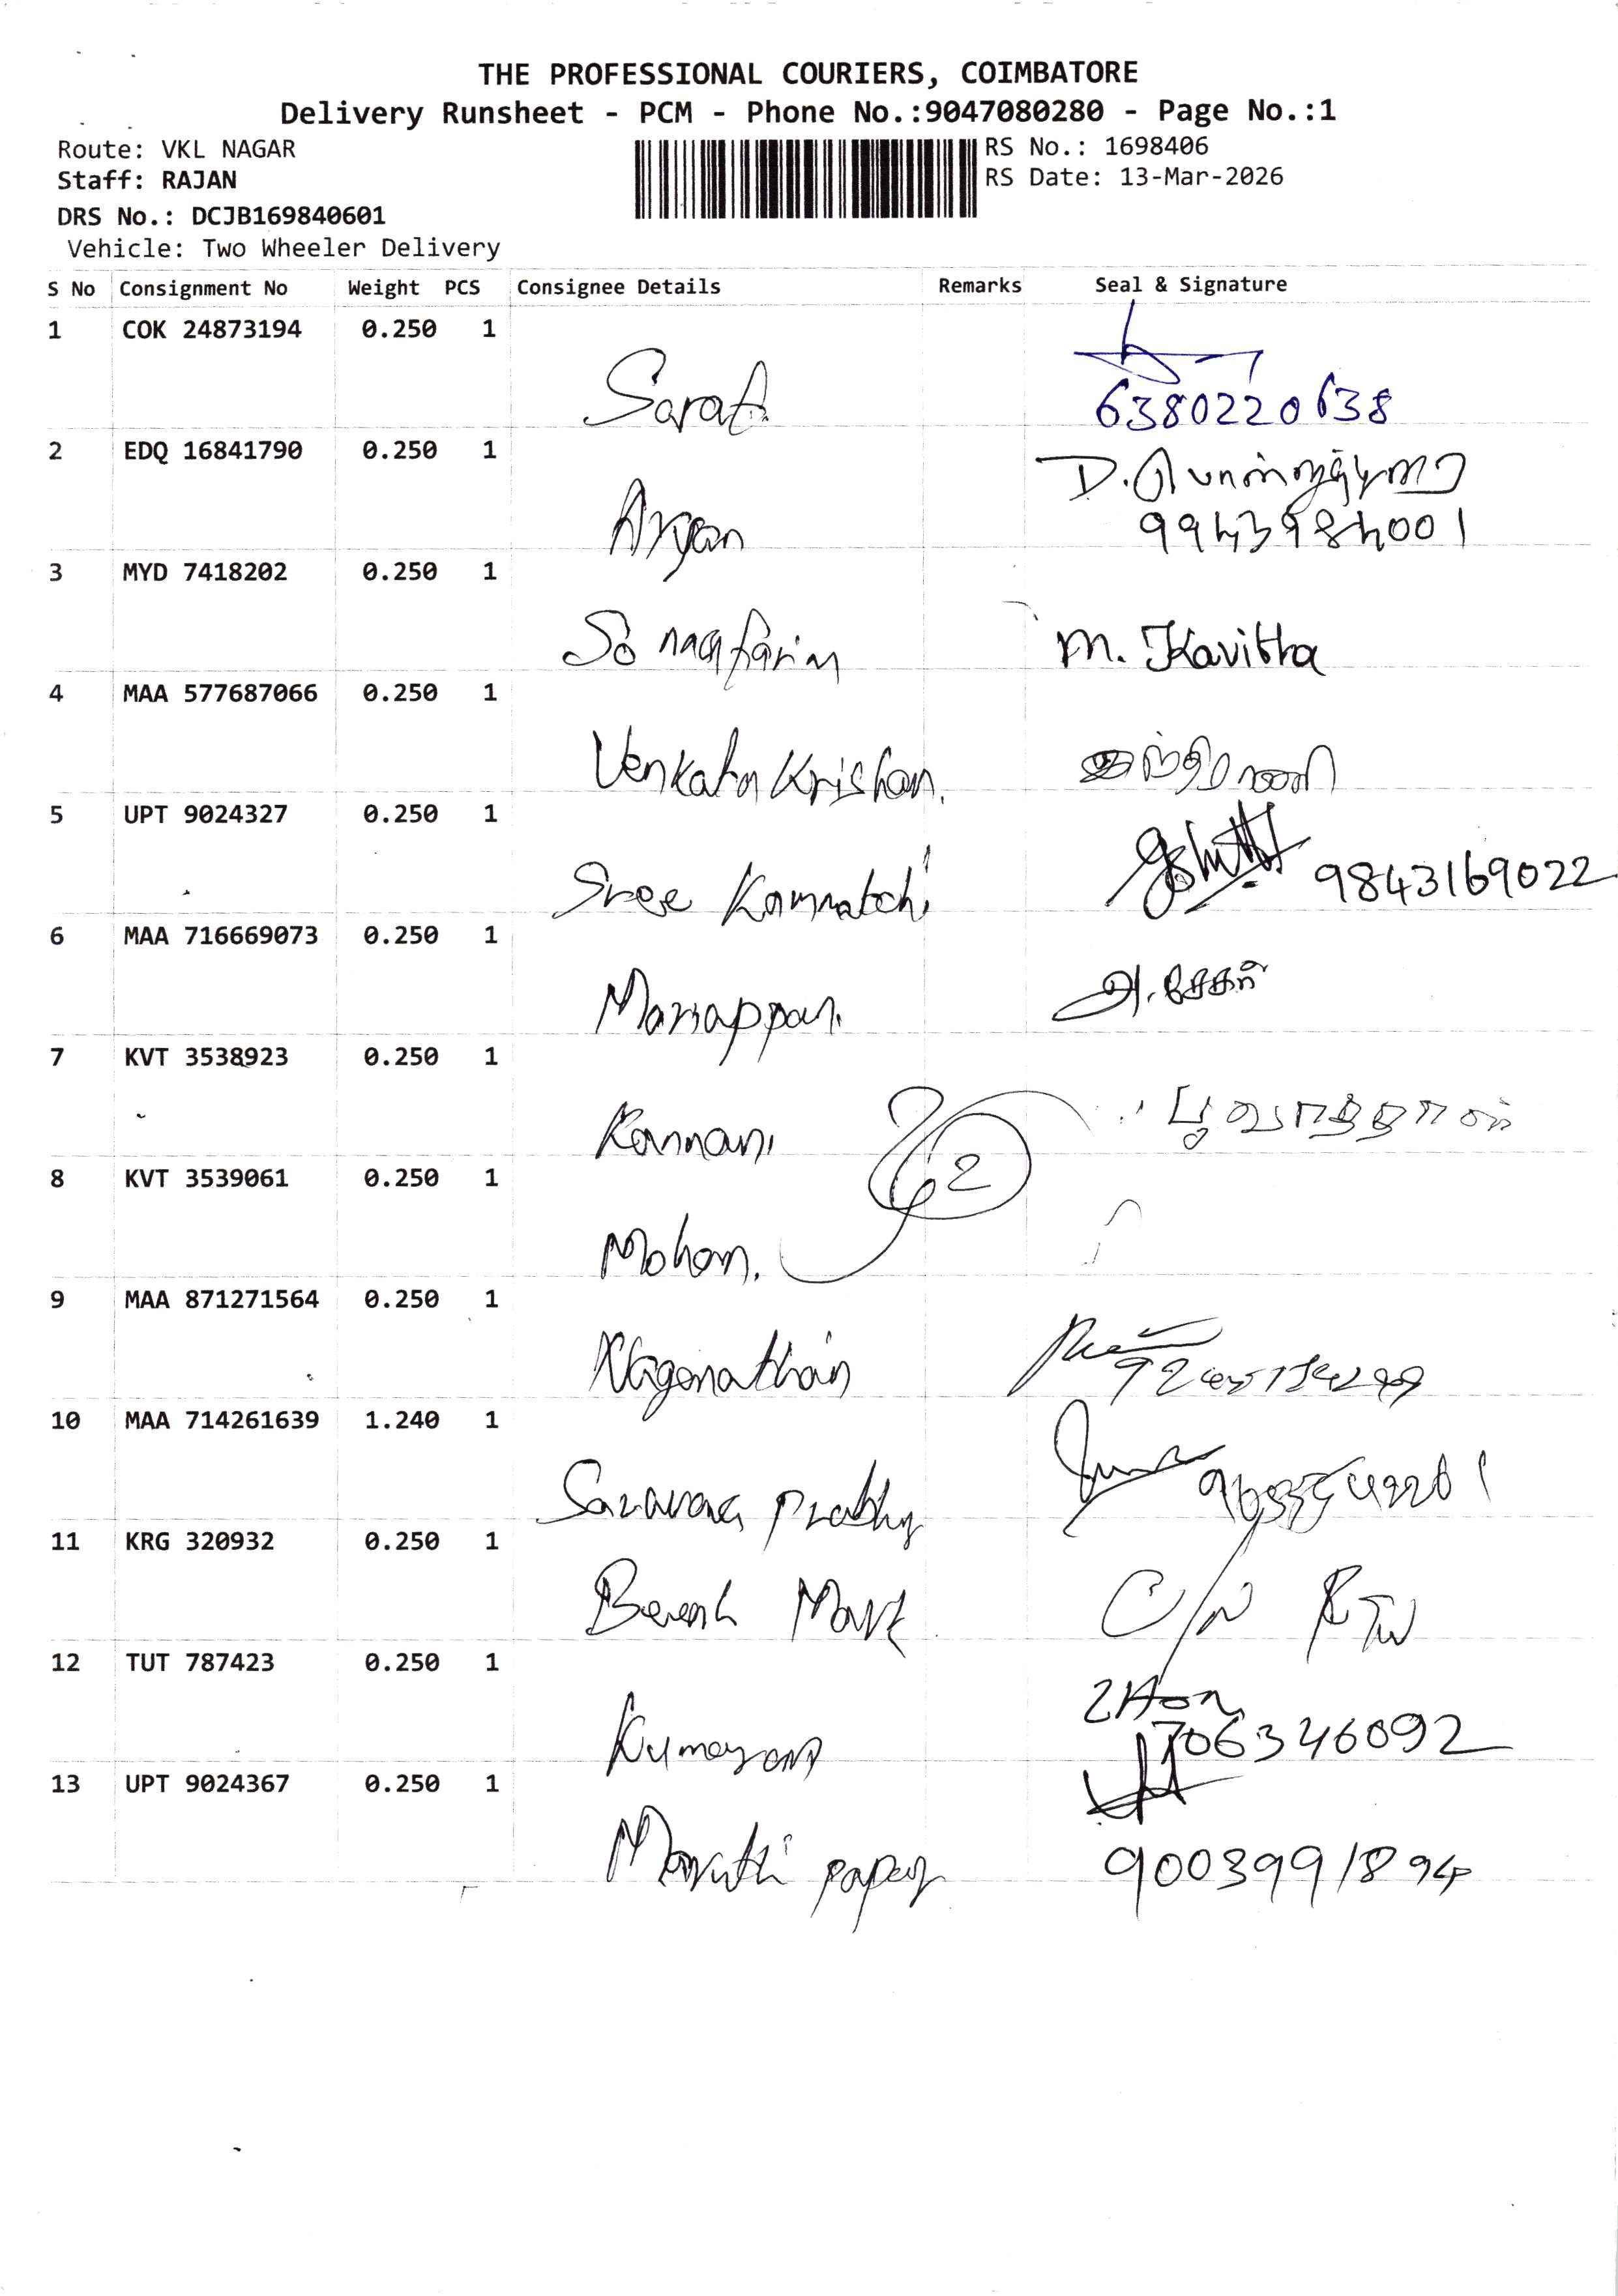 THE PROFESSIONAL COURIERS, COIMBATORE
Delivery Runsheet - PCM - Phone No.:9047080280 - Page No.:1
Route: VKL NAGAR
RS No.: 1698406
Staff: RAJAN
RS Date: 13-Mar-2026
DRS No.: DCJB169840601
Vehicle: Two Wheeler Delivery
S No Consignment No Weight PCS Consignee Details Remarks Seal & Signature
1 COK 24873194 0.250 1
Sarath
6380220638
2 EDQ 16841790 0.250 1
D.
Aryan
9943984001
3 MYD 7418202 0.250 1
M. Kavitha
4 MAA 577687066 0.250 1
Venkata Krishan.
5 UPT 9024327 0.250 1
Sree Kamatchi
9843169022
6 MAA 716669073 0.250 1
அ.சேகர்
Mariappan.
7 KVT 3538923 0.250 1
Kannan
2
8 KVT 3539061 0.250 1
Mohan.
9 MAA 871271564 0.250 1
Naganathan
10 MAA 714261639 1.240 1
Saravana Prabhu
11 KRG 320932 0.250 1
Mark
C/N RTN
12 TUT 787423 0.250 1
706346092
13 UPT 9024367 0.250 1
Maruthi paper
9003991894